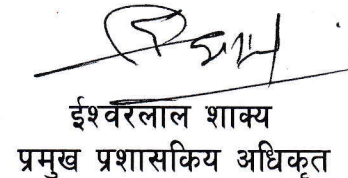 ईश्वरलाल शाक्य
प्रमुख प्रशासकिय अधिकृत